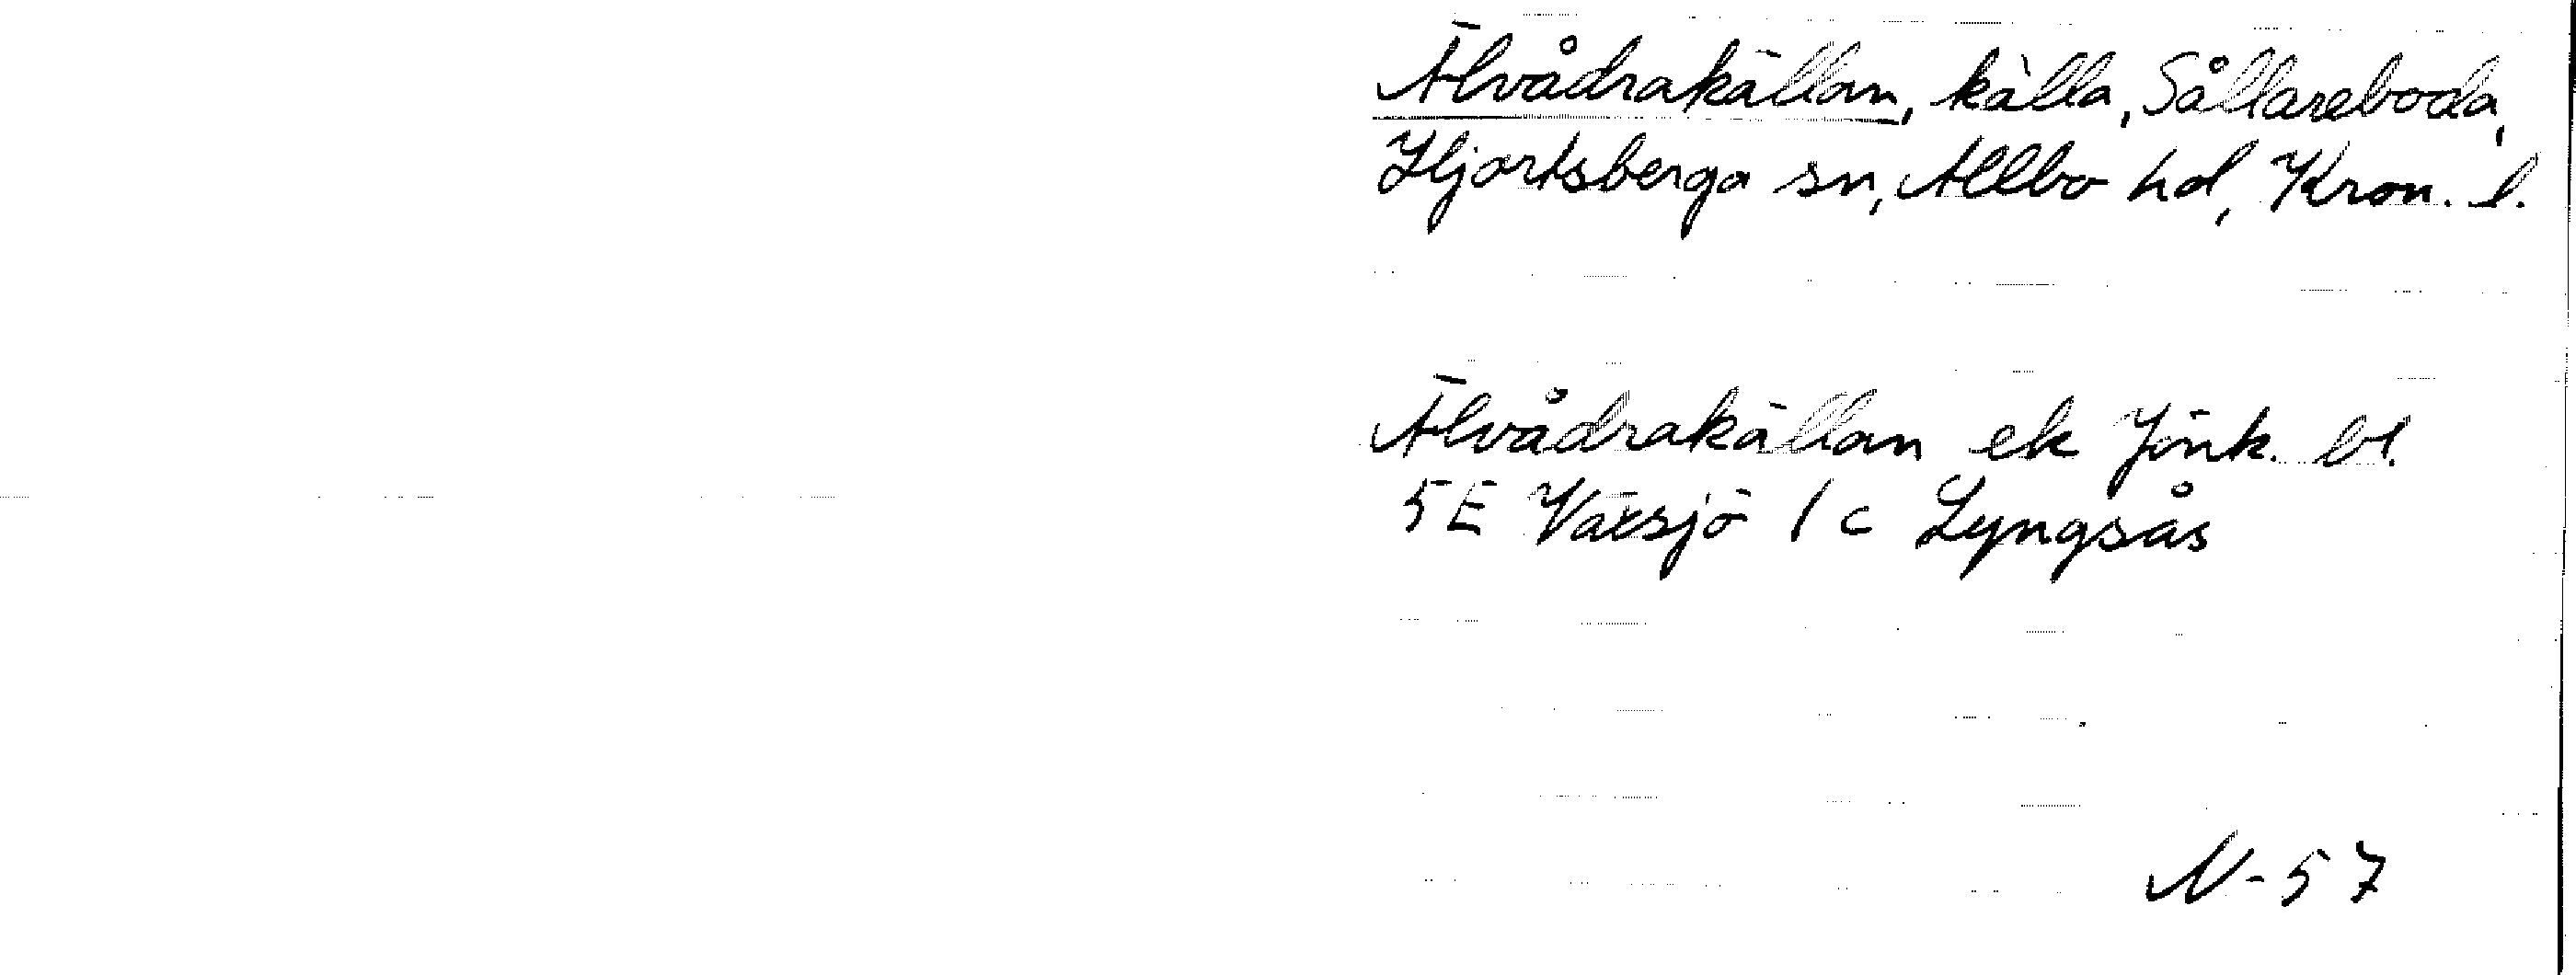 Älvådrakällan, källa, Sållareboda,
Hjortsberga sn, Allbo hd, Kron. l.
Älvådrakällan ek Jönk. bl.
5E Växsjö 1c Lyngsås
N-57